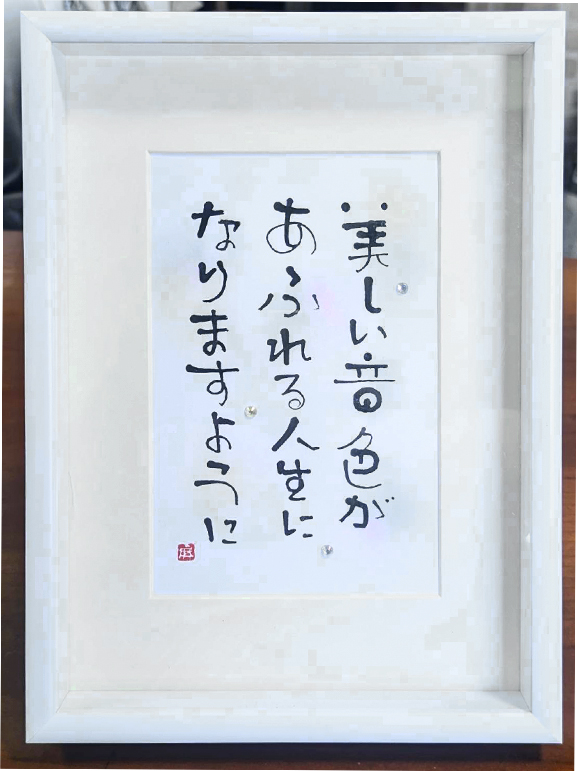 美しい音色が
あふれる人生に
なりますように